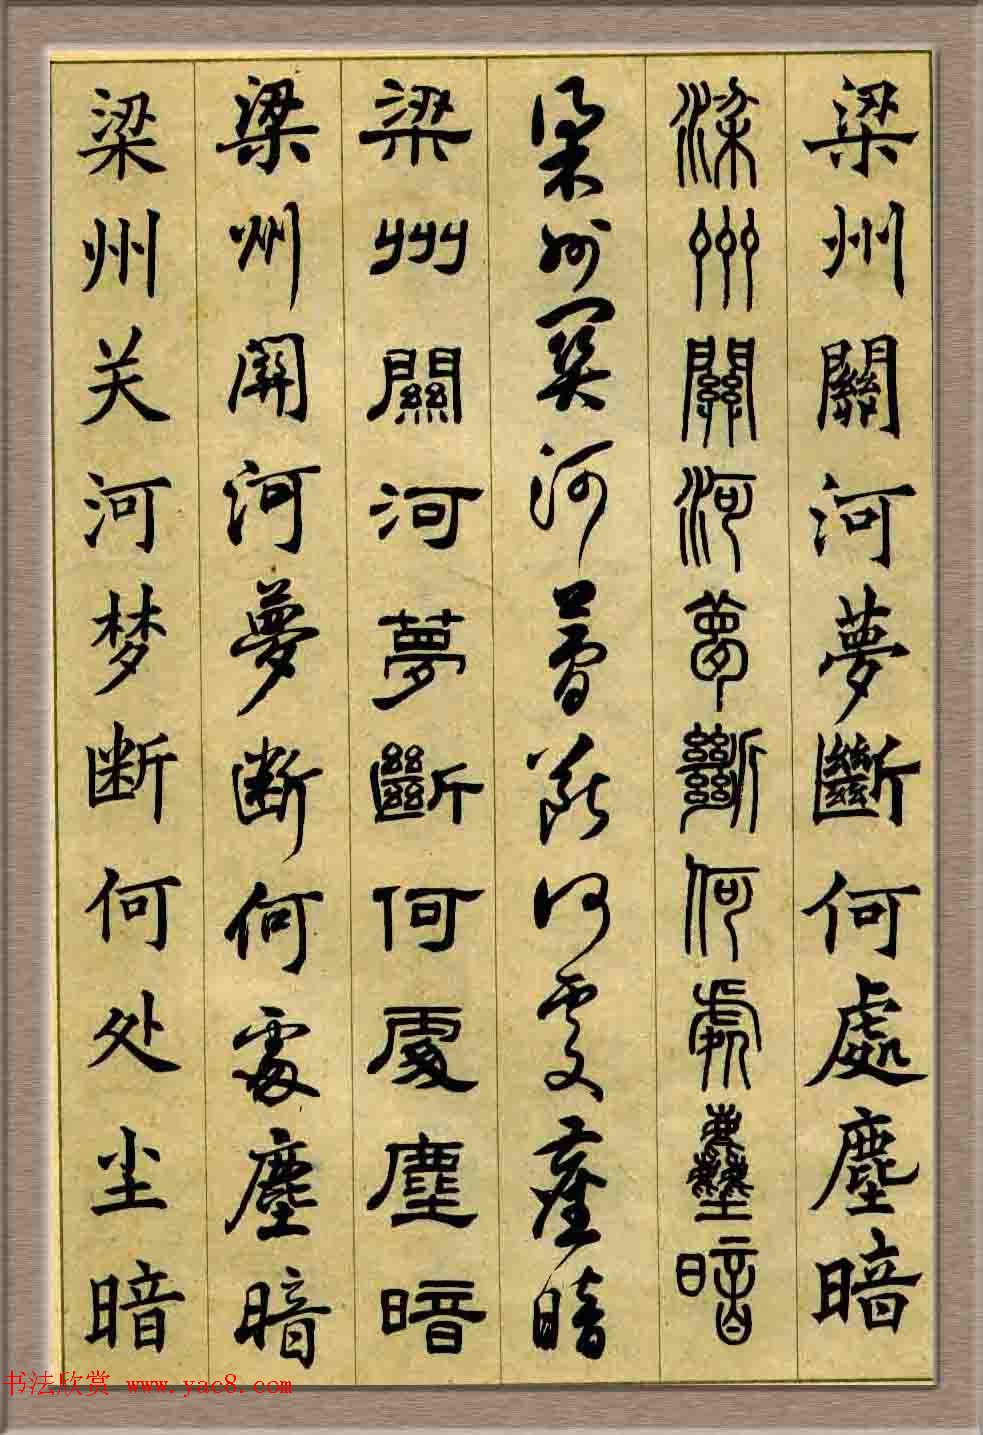 梁州關河夢斷何處塵暗
梁州關河夢斷何處塵暗
梁州關河夢斷何處塵暗
梁州關河夢斷何處塵暗
梁州関河夢断何處塵暗
梁州关河梦断何处尘暗
书法欣赏 www.yac8.com